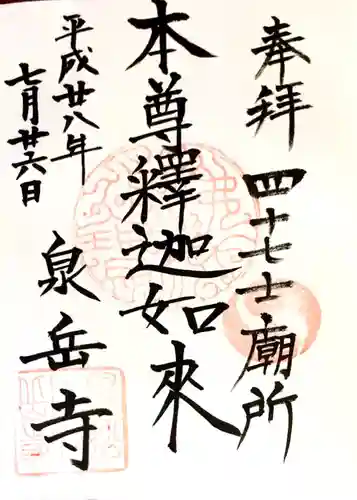 奉拝
四十七士廟所
本尊釋迦如來
平成廿八年
七月廿六日
泉岳寺